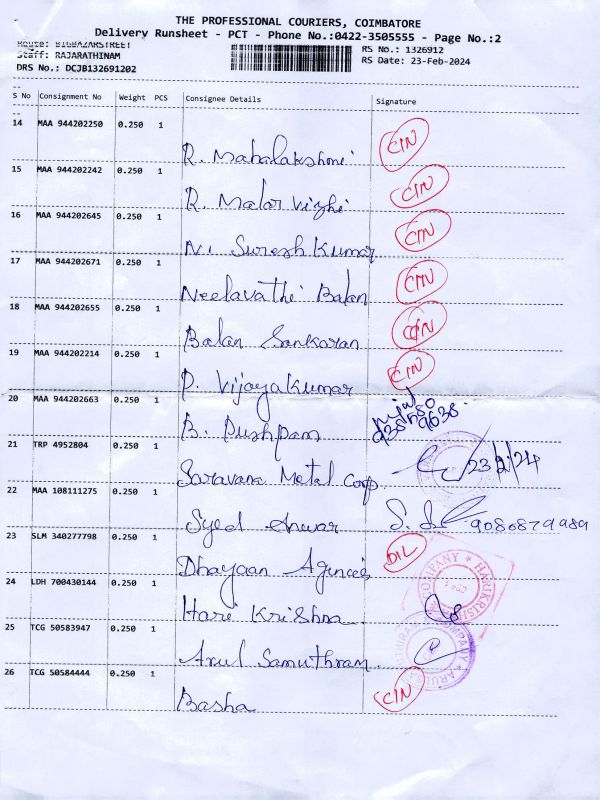 THE PROFESSIONAL COURIERS, COIMBATORE
Delivery Runsheet - PCT - Phone No.:0422-3505555 - Page No.:2
Route: BIGBAZARSTREET
RS No.: 1326912
Staff: RAJARATHINAM
RS Date: 23-Feb-2024
DRS No.: DCJB132691202
S No Consignment No Weight PCS Consignee Details Signature
14 MAA 944202250 0.250 1
R. Mahalakshmi CIN
15 MAA 944202242 0.250 1
R. Malar Vizhi CIN
16 MAA 944202645 0.250 1
N. Suresh Kumar CIN
17 MAA 944202671 0.250 1
Neelavathi Balan CIN
18 MAA 944202655 0.250 1
Balan Sankaran CIN
19 MAA 944202214 0.250 1
P. Vijayakumar CIN
20 MAA 944202663 0.250 1
B. Pushpam
21 TRP 4952804 0.250 1
Saravana Metal Corp 23/2/24
22 MAA 108111275 0.250 1
Syed Anwar 9086879989
23 SLM 340277798 0.250 1
Dhayaan Agencies DIL
24 LDH 700430144 0.250 1
Hari Krishna
COMPANY * HARIKRISH
25 TCG 50583947 0.250 1
Arul Samuthram
26 TCG 50584444 0.250 1
Basha CIN